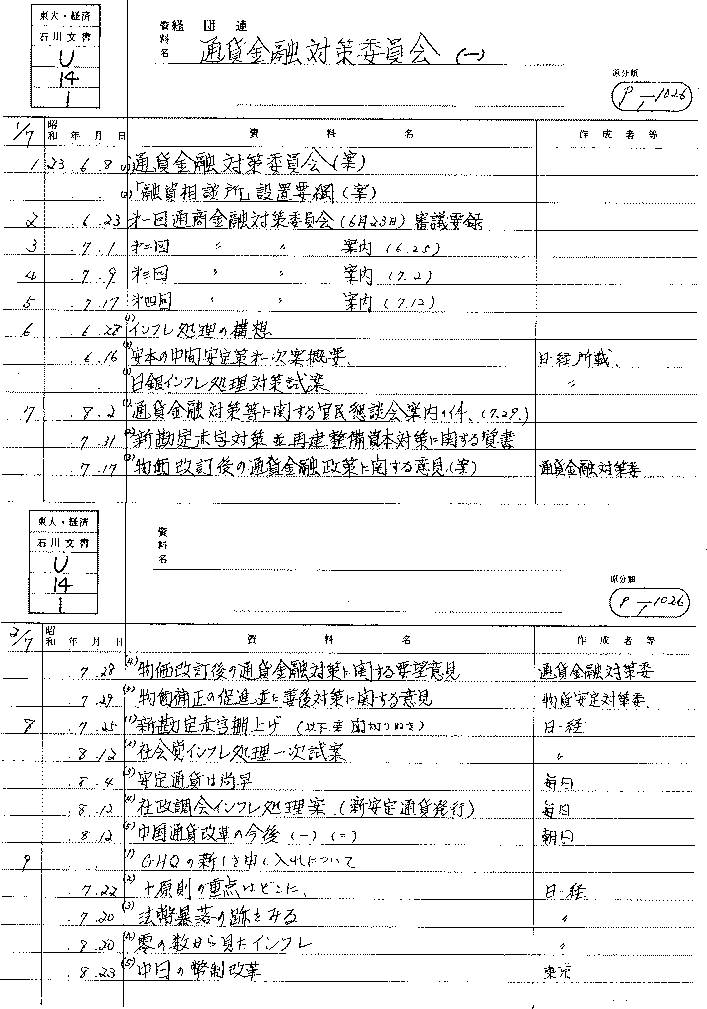 東大・経済
石川文書
U
14
1
資料名
経団連
通貨金融対策委員会 (一)
原分類
P-1-1026
1/7
昭和 年 月 日 資料名 作成者等
1 23 6 8 (1) 通貨金融対策委員会 (案)
(2) 「融資相談所」設置要綱 (案)
2 6.23 第一回通商金融対策委員会 (6月23日) 審議要録
3 7.1 第二回 〃 〃 案内 (6.25)
4 7.9 第三回 〃 〃 案内 (7.2)
5 7.17 第四回 〃 〃 案内 (7.12)
6 6.28 (1) インフレ処理の構想
6.16 (2) 安本の中間安定第一次案概要 日・経所載
(3) 日銀インフレ処理対策試案 〃
7 8.2 (1) 通貨金融対策等に関する官民懇談会案内の件 (7.29.)
7.31 (2) 新勘定赤字対策並再建整備資本対策に関する覚書
7.17 (3) 物価改訂後の通貨金融政策に関する意見 (案) 通貨金融対策委
東大・経済
石川文書
U
14
1
資料名
原分類
P-1-1026
2/7
昭和 年 月 日 資料名 作成者等
7.28 (4) 物価改訂後の通貨金融対策に関する要望意見 通貨金融対策委
7.29 (5) 物価補正の促進並に善後対策に関する意見 物貨安定対策委
8 7.25 (1) 新勘定赤字棚上げ (以下 新聞切りぬき) 日・経
8.12 (2) 社会党インフレ処理一次試案 〃
8.4 (3) 安定通貨は尚早 毎日
8.12 (4) 社政調会インフレ処理案 (新安定通貨発行) 毎日
8.12 (5) 中国通貨改革の今後 (一) (二) 朝日
9 . . (1) GHQの新しき申し入れについて
7.22 (2) 十原則の重点はどこに 日・経
7.20 (3) 法幣暴落の跡をみる 〃
8.20 (4) 零の数から見たインフレ 〃
8.23 (5) 中国の幣制改革 東京